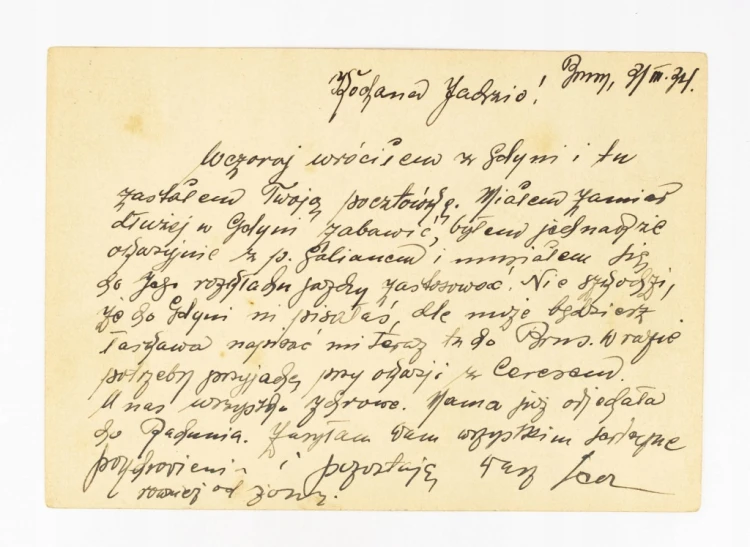 Kochana Jadziu!
Wczoraj wróciłem z Gdyni i tu
zastałem Twoją pocztówkę. Miałem zamiar
dłużej w Gdyni zabawić, byłem jednakże
okazyjnie z p. i musiałem się
do Jego rozkładu jazdy zastosować. Nie szkodzi,
że do Gdyni pisałaś, ale może będziesz
łaskawa napisać mi teraz tu do W razie
potrzeby przyjadę przy okazji z
U nas wszystko zdrowe. Mama już odjechała
do Zasyłam Wam wszystkim serdeczne
pozdrowienia i pozostaję Wasz
również od żony.